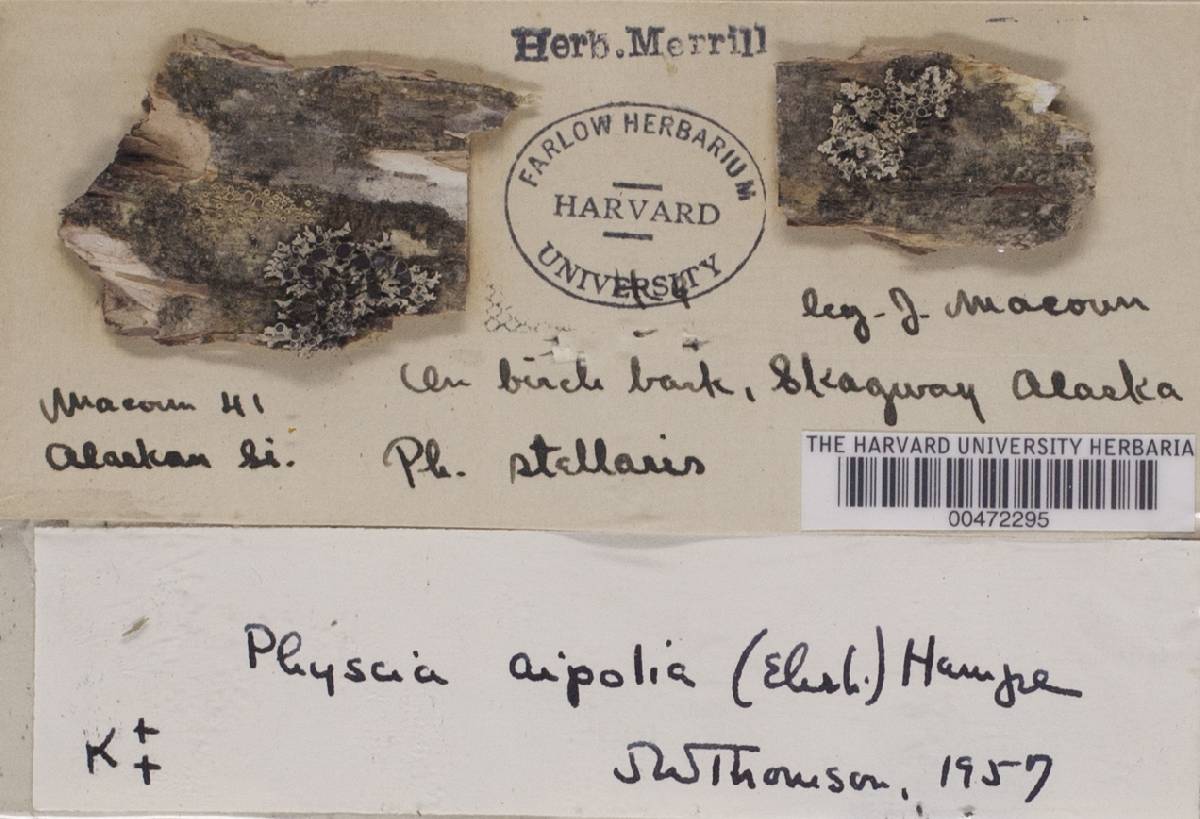 Herb. Merrill
FARLOW HERBARIUM
HARVARD
UNIVERSITY
leg. J. Macoun
On birch bark, Skagway Alaska
Macoun 41
Alaskan Li.
Ph. stellaris
THE HARVARD UNIVERSITY HERBARIA
00472295
Physcia aipolia (Ehrh.) Hampe
K +
+
JWThomson, 1957